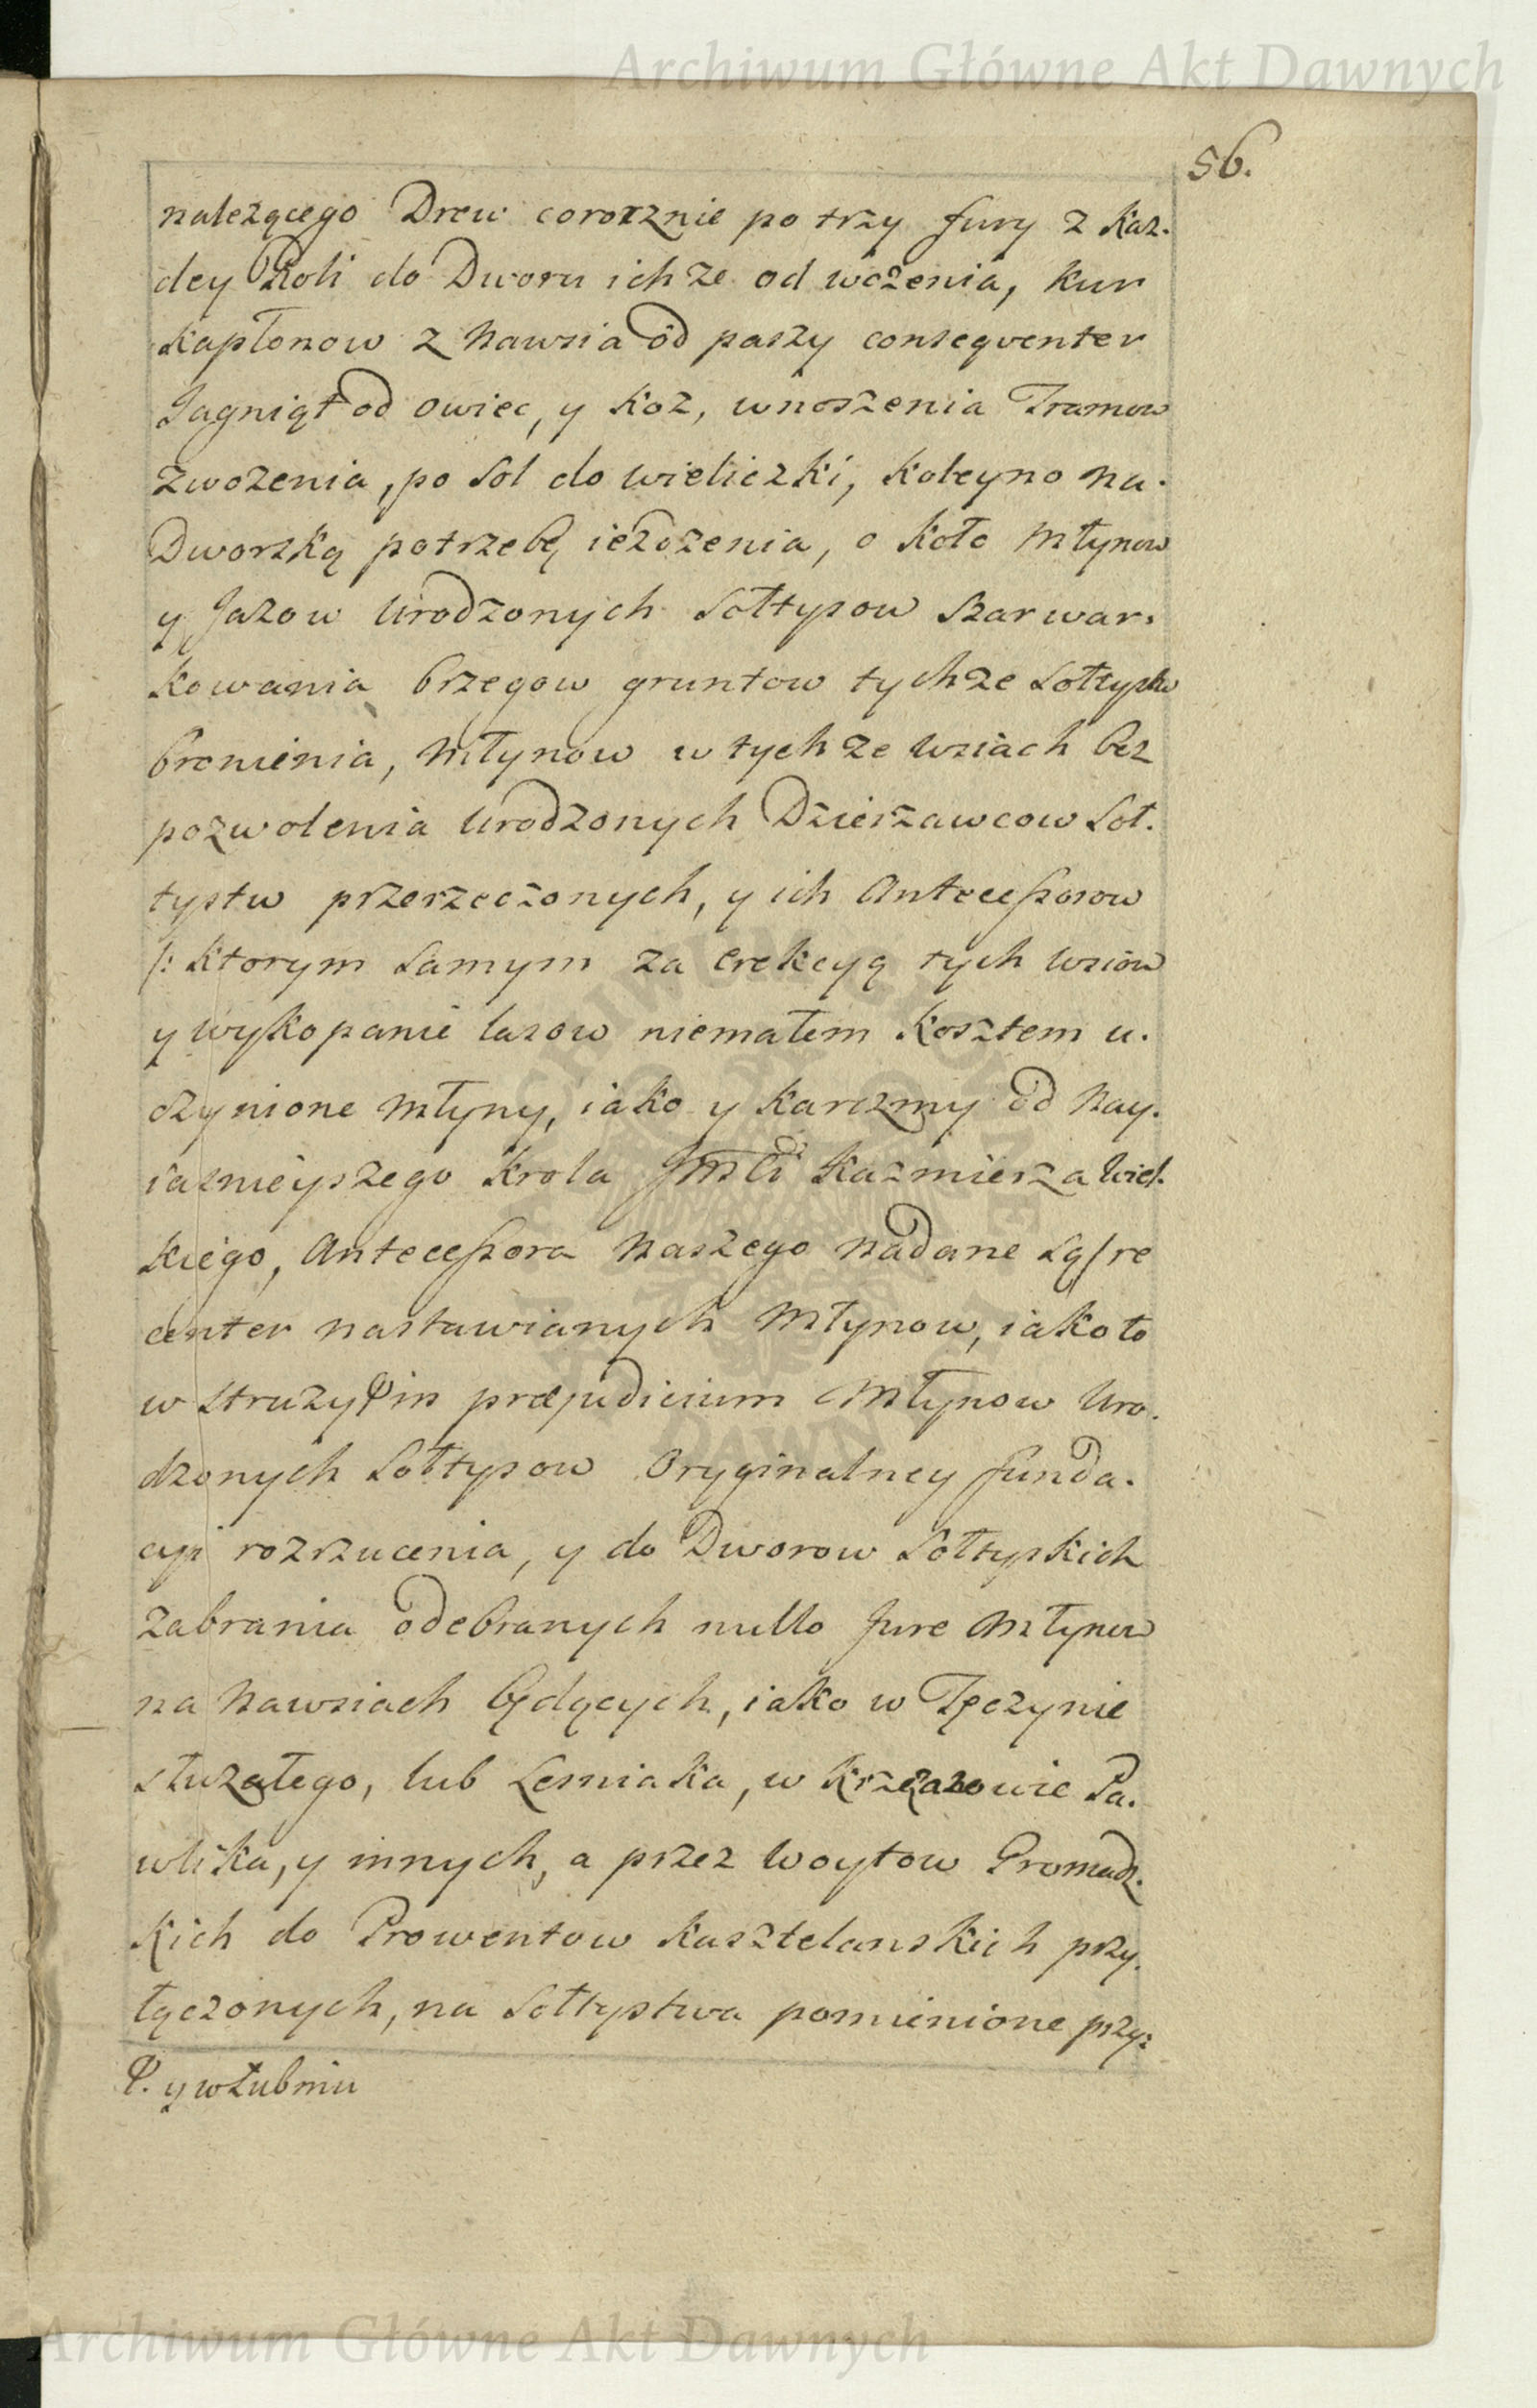 Archiwum Główne Akt Dawnych
56.
nalezącego Drew corocznie po trzy fury z kaz.
dey Roli do Dworu ichze od wozenia, kur
kapłonow z Nawsia od paszy conseqventer
Jagniąt od owiec, y koz, wnoszenia Tramow
zwozenia, po Sol do wieliczki, koleyno na.
Dworską potrzebę iezdzenia, o koło Młynow
y Jazow Urodzonych Sołtysow Szarwar.
kowania brzegow gruntow tychze Sołtysow
bronienia, Młynow w tychze wsiach bez
pozwolenia Urodzonych Dzierzawcow Soł.
tystw przerzeczonych, y ich Antecessorow
/: ktorym Samym za erekcyą tych wsiow
y wykopanie lasow niemałem kosztem u.
czynione Młyny, iako y karczmy od Nay.
iasnieyszego Krola JMsci Kazmierza Wiel.
kiego, Antecessora Naszego nadane Są/ re
center nastawianych Młynow, iako to
w Struzy φ in præjudicium Młynow Uro.
dzonych Sołtysow Oryginalney funda.
cyi rozrzucenia, y do Dworow Sołtyskich
zabrania odebranych nullo Jure Młynow
na Nawsiach będących, iako w Tęczynie
słuzałego, lub Lesniaka, w Krzęzowie Pa.
wlika, y innych, a przez Woytow Gromadz.
kich do Prowentow kasztelanskich przy.
łączonych, na Sołtystwa pomienione przy:
φ. y w Łubniu
Archiwum Główne Akt Dawnych